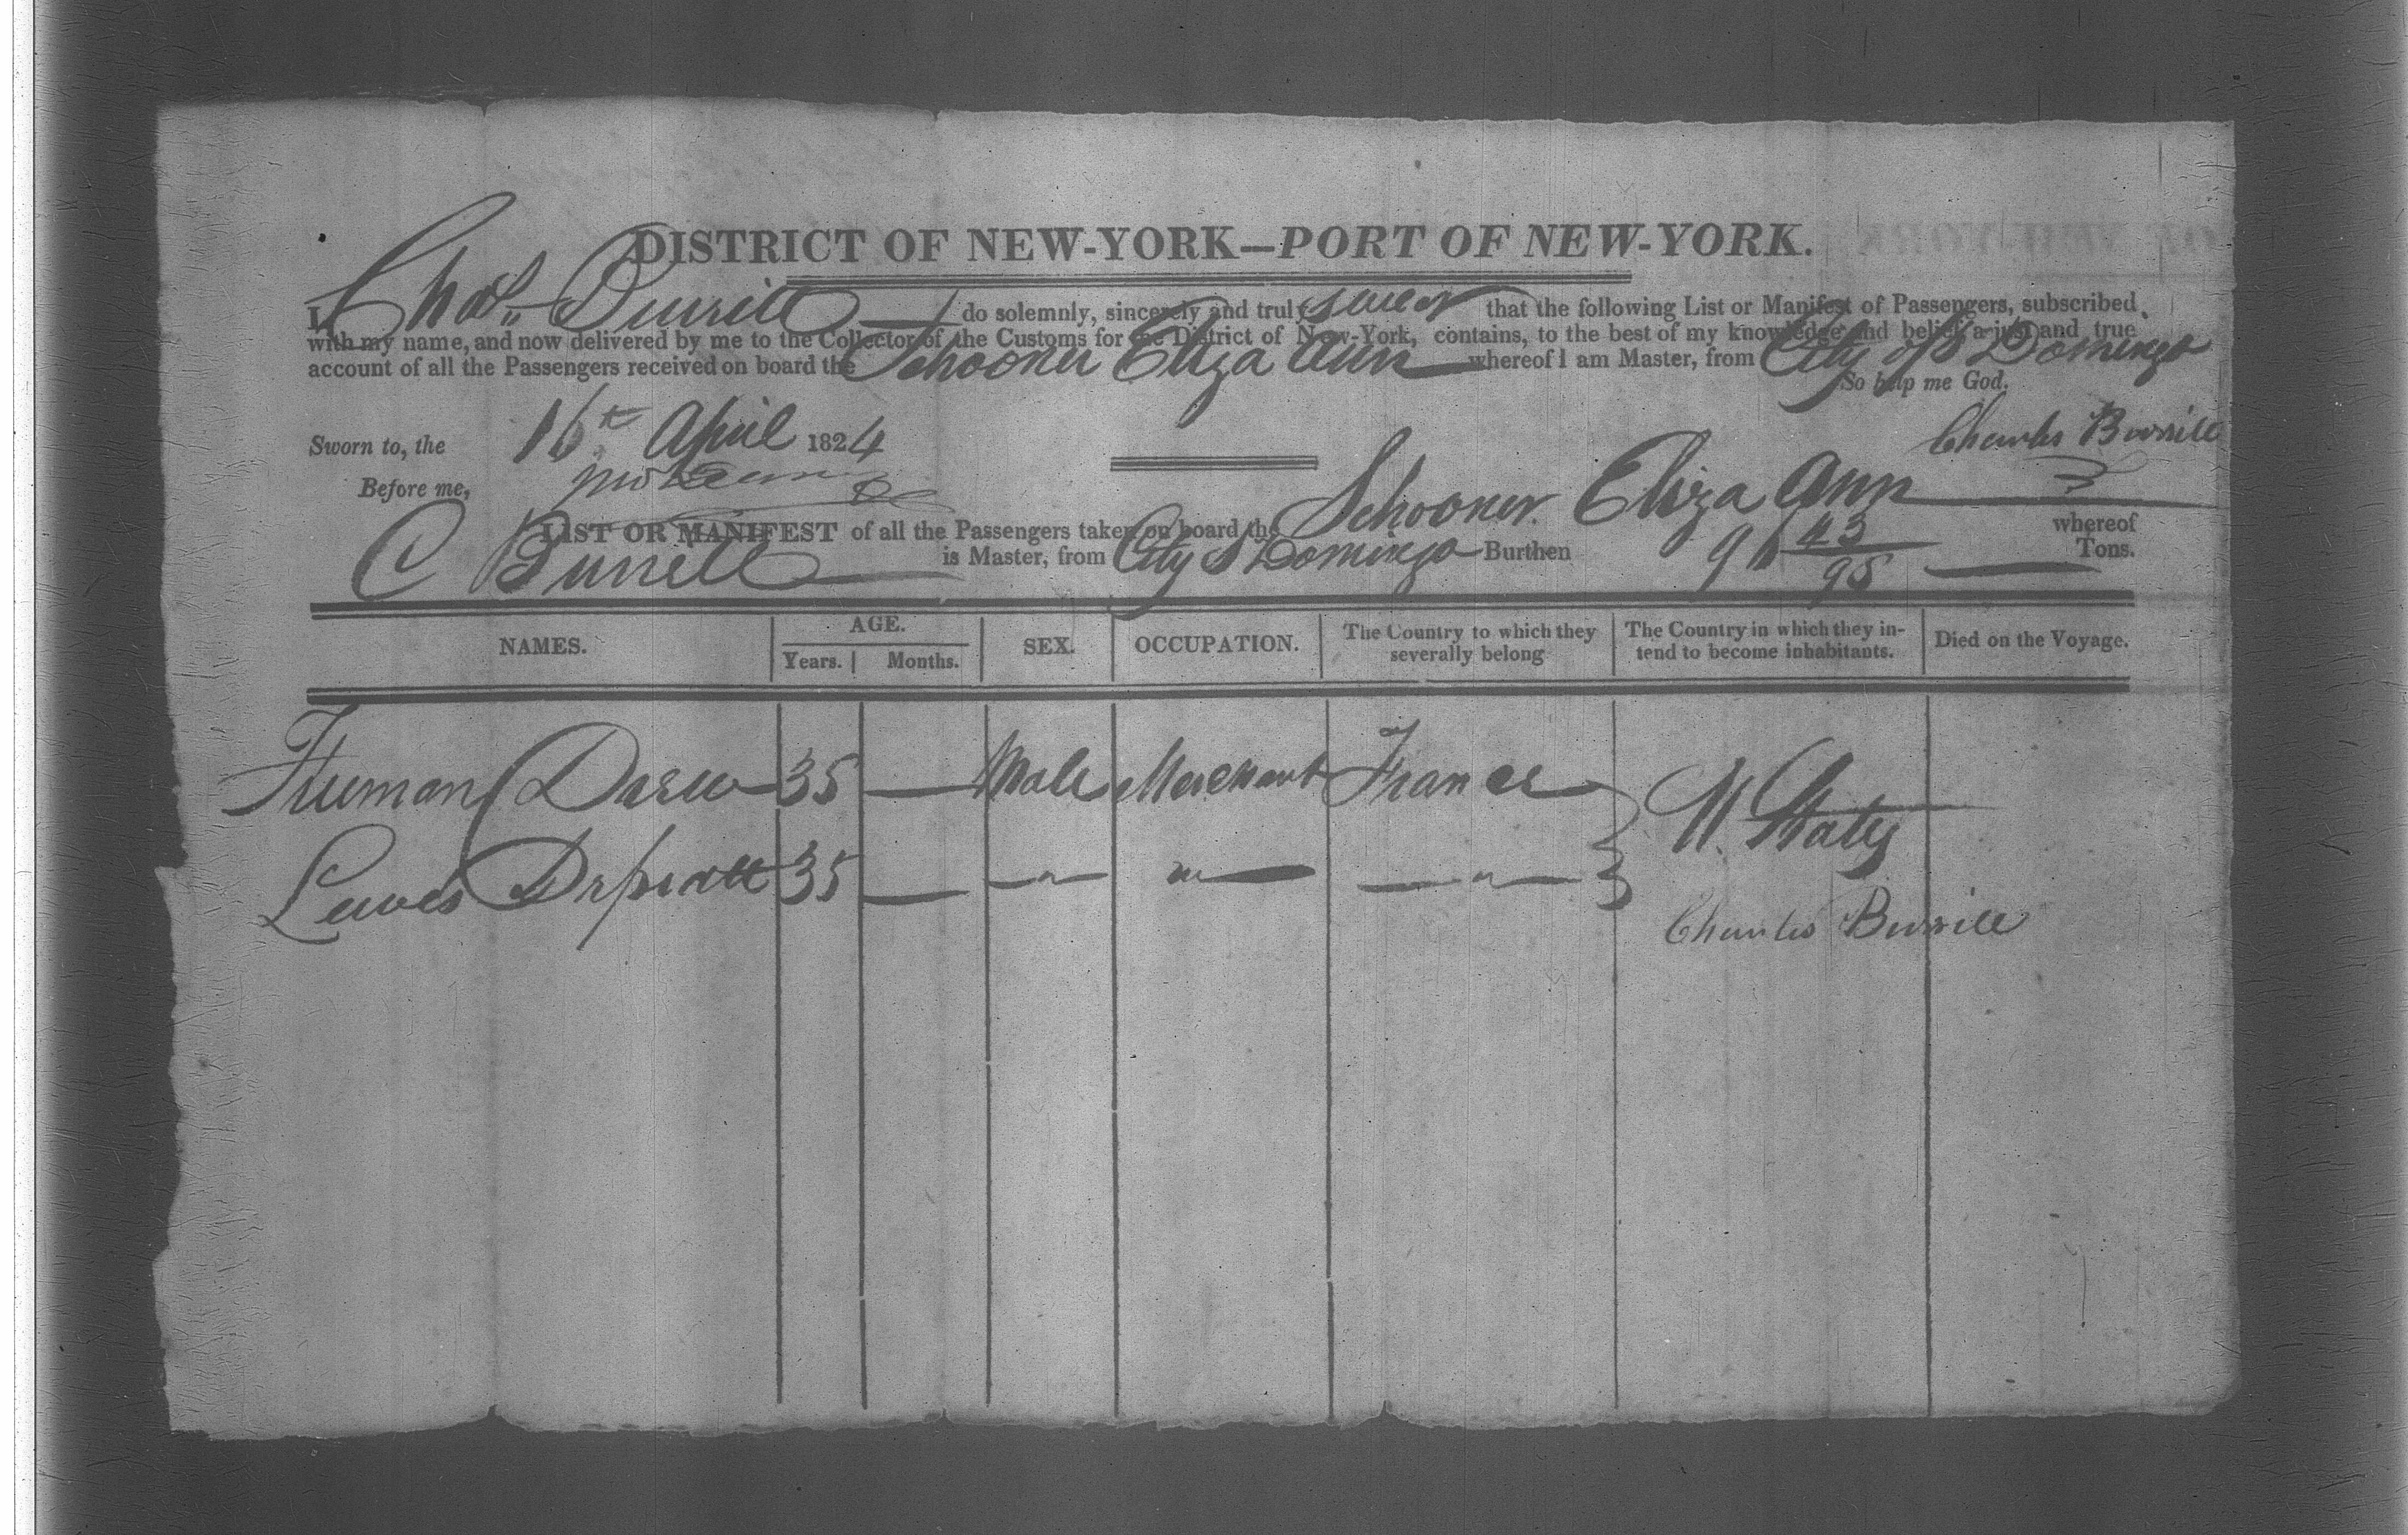 DISTRICT OF NEW-YORK—PORT OF NEW-YORK.
I, Chas Burrill do solemnly, sincerely and truly swear that the following List or Manifest of Passengers, subscribed
with my name, and now delivered by me to the Collector of the Customs for the District of New-York, contains, to the best of my knowledge and belief, a just and true
account of all the Passengers received on board the Schooner Eliza Ann whereof I am Master, from City of St Domingo
So help me God.
Sworn to, the 16th April 1824 Charles Burrill
Before me,
LIST OR MANIFEST of all the Passengers taken on board the Schooner Eliza Ann whereof
C Burrell is Master, from City St Domingo Burthen 96 43/95 Tons.
NAMES. AGE. Years. Months. SEX. OCCUPATION. The Country to which they severally belong The Country in which they intend to become inhabitants. Died on the Voyage.
35 — Male Merchant France U. States
35 — " " "
Charles Burrill